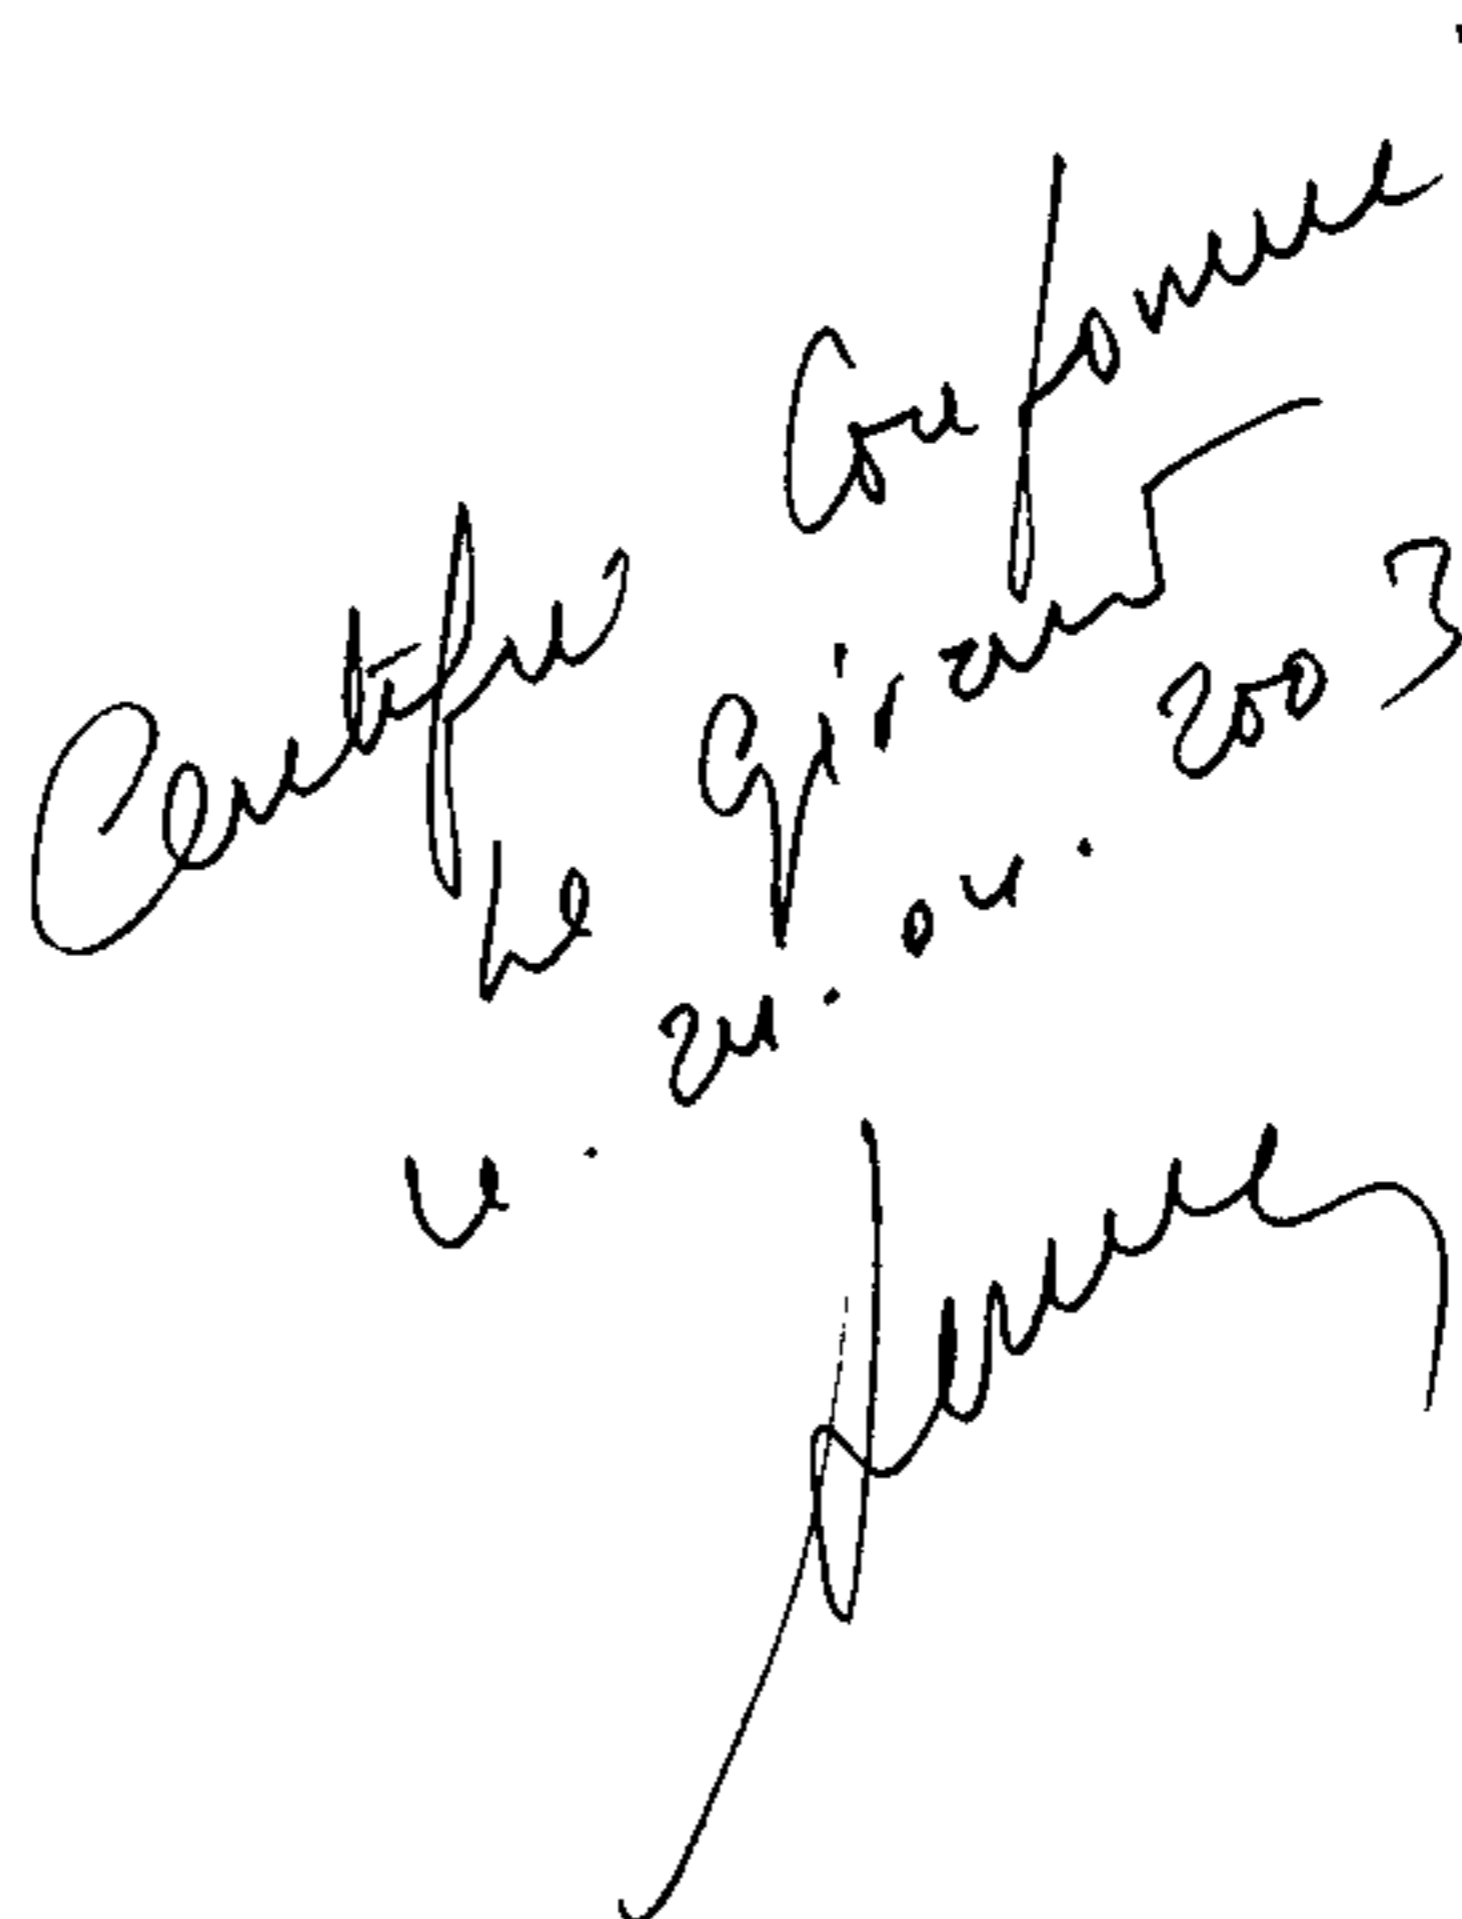 Certifié Conforme
Le Gérant
le 24.04.2003